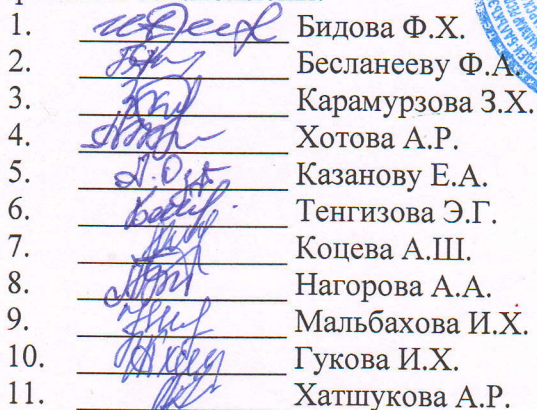 1. Бидова Ф.Х.
2. Бесланееву Ф.А.
3. Карамурзова З.Х.
4. Хотова А.Р.
5. Казанову Е.А.
6. Тенгизова Э.Г.
7. Коцева А.Ш.
8. Нагорова А.А.
9. Мальбахова И.Х.
10. Гукова И.Х.
11. Хатшукова А.Р.